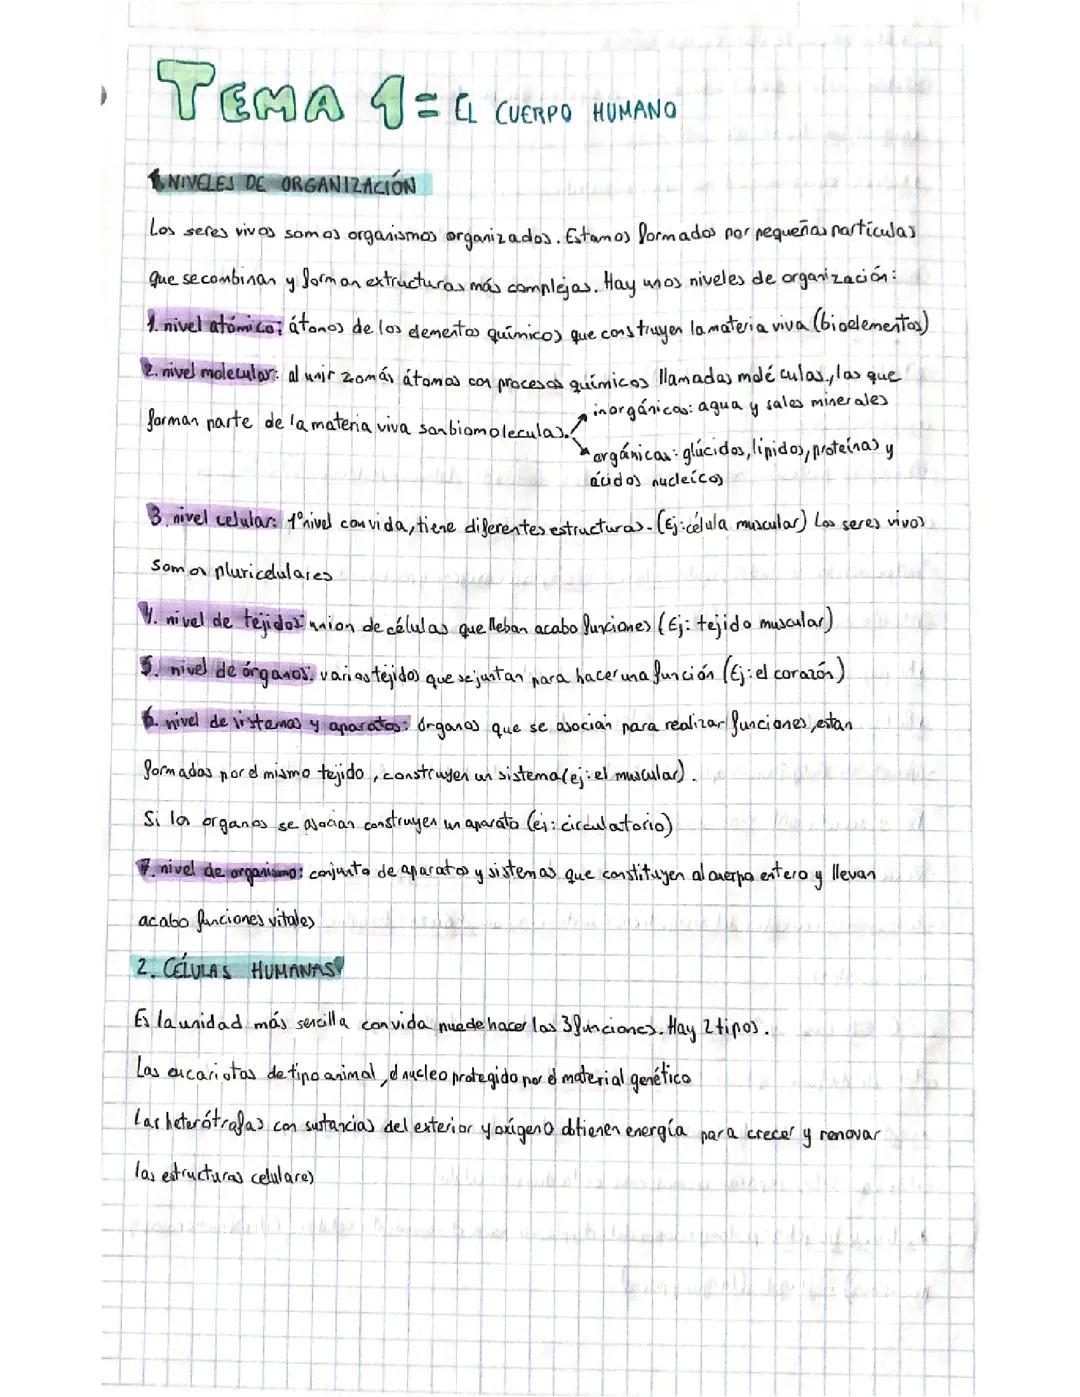 TEMA 1= EL CUERPO HUMANO
1. NIVELES DE ORGANIZACIÓN
Los seres vivos somos organismos organizados. Estamos formados por pequeñas partículas
que se combinan y forman extructuras más complejas. Hay unos niveles de organización:
1. nivel atómico: átomos de los elementos químicos que construyen la materia viva (bioelementos)
2. nivel molecular: al unir 2 o más átomos con procesos químicos llamadas moléculas, las que
forman parte de la materia viva son biomoleculas.
inorgánicas: agua y sales minerales
orgánicas: glúcidos, lípidos, proteínas y
ácidos nucleícos
3. nivel celular: 1º nivel con vida, tiene diferentes estructuras. (Ej: célula muscular) Los seres vivos
somos pluricelulares
4. nivel de tejidos: union de células que lleban acabo funciones (Ej: tejido muscular)
5. nivel de órganos: varios tejidos que se juntan para hacer una función (Ej: el corazón)
6. nivel de sistemas y aparatos: órganos que se asocian para realizar funciones, estan
formadas por el mismo tejido, construyen un sistema (ej: el muscular).
Si los organos se asocian construyen un aparato (ej: circulatorio)
7. nivel de organismo: conjunto de aparatos y sistemas que constituyen al cuerpo entero y llevan
acabo funciones vitales
2. CÉLULAS HUMANAS
Es la unidad más sencilla con vida puede hacer las 3 funciones. Hay 2 tipos.
Las eucariotas de tipo animal, el nucleo protegido por el material genético
Las heterótrafas con sustancias del exterior y oxígeno obtienen energía para crecer y renovar
las estructuras celulares